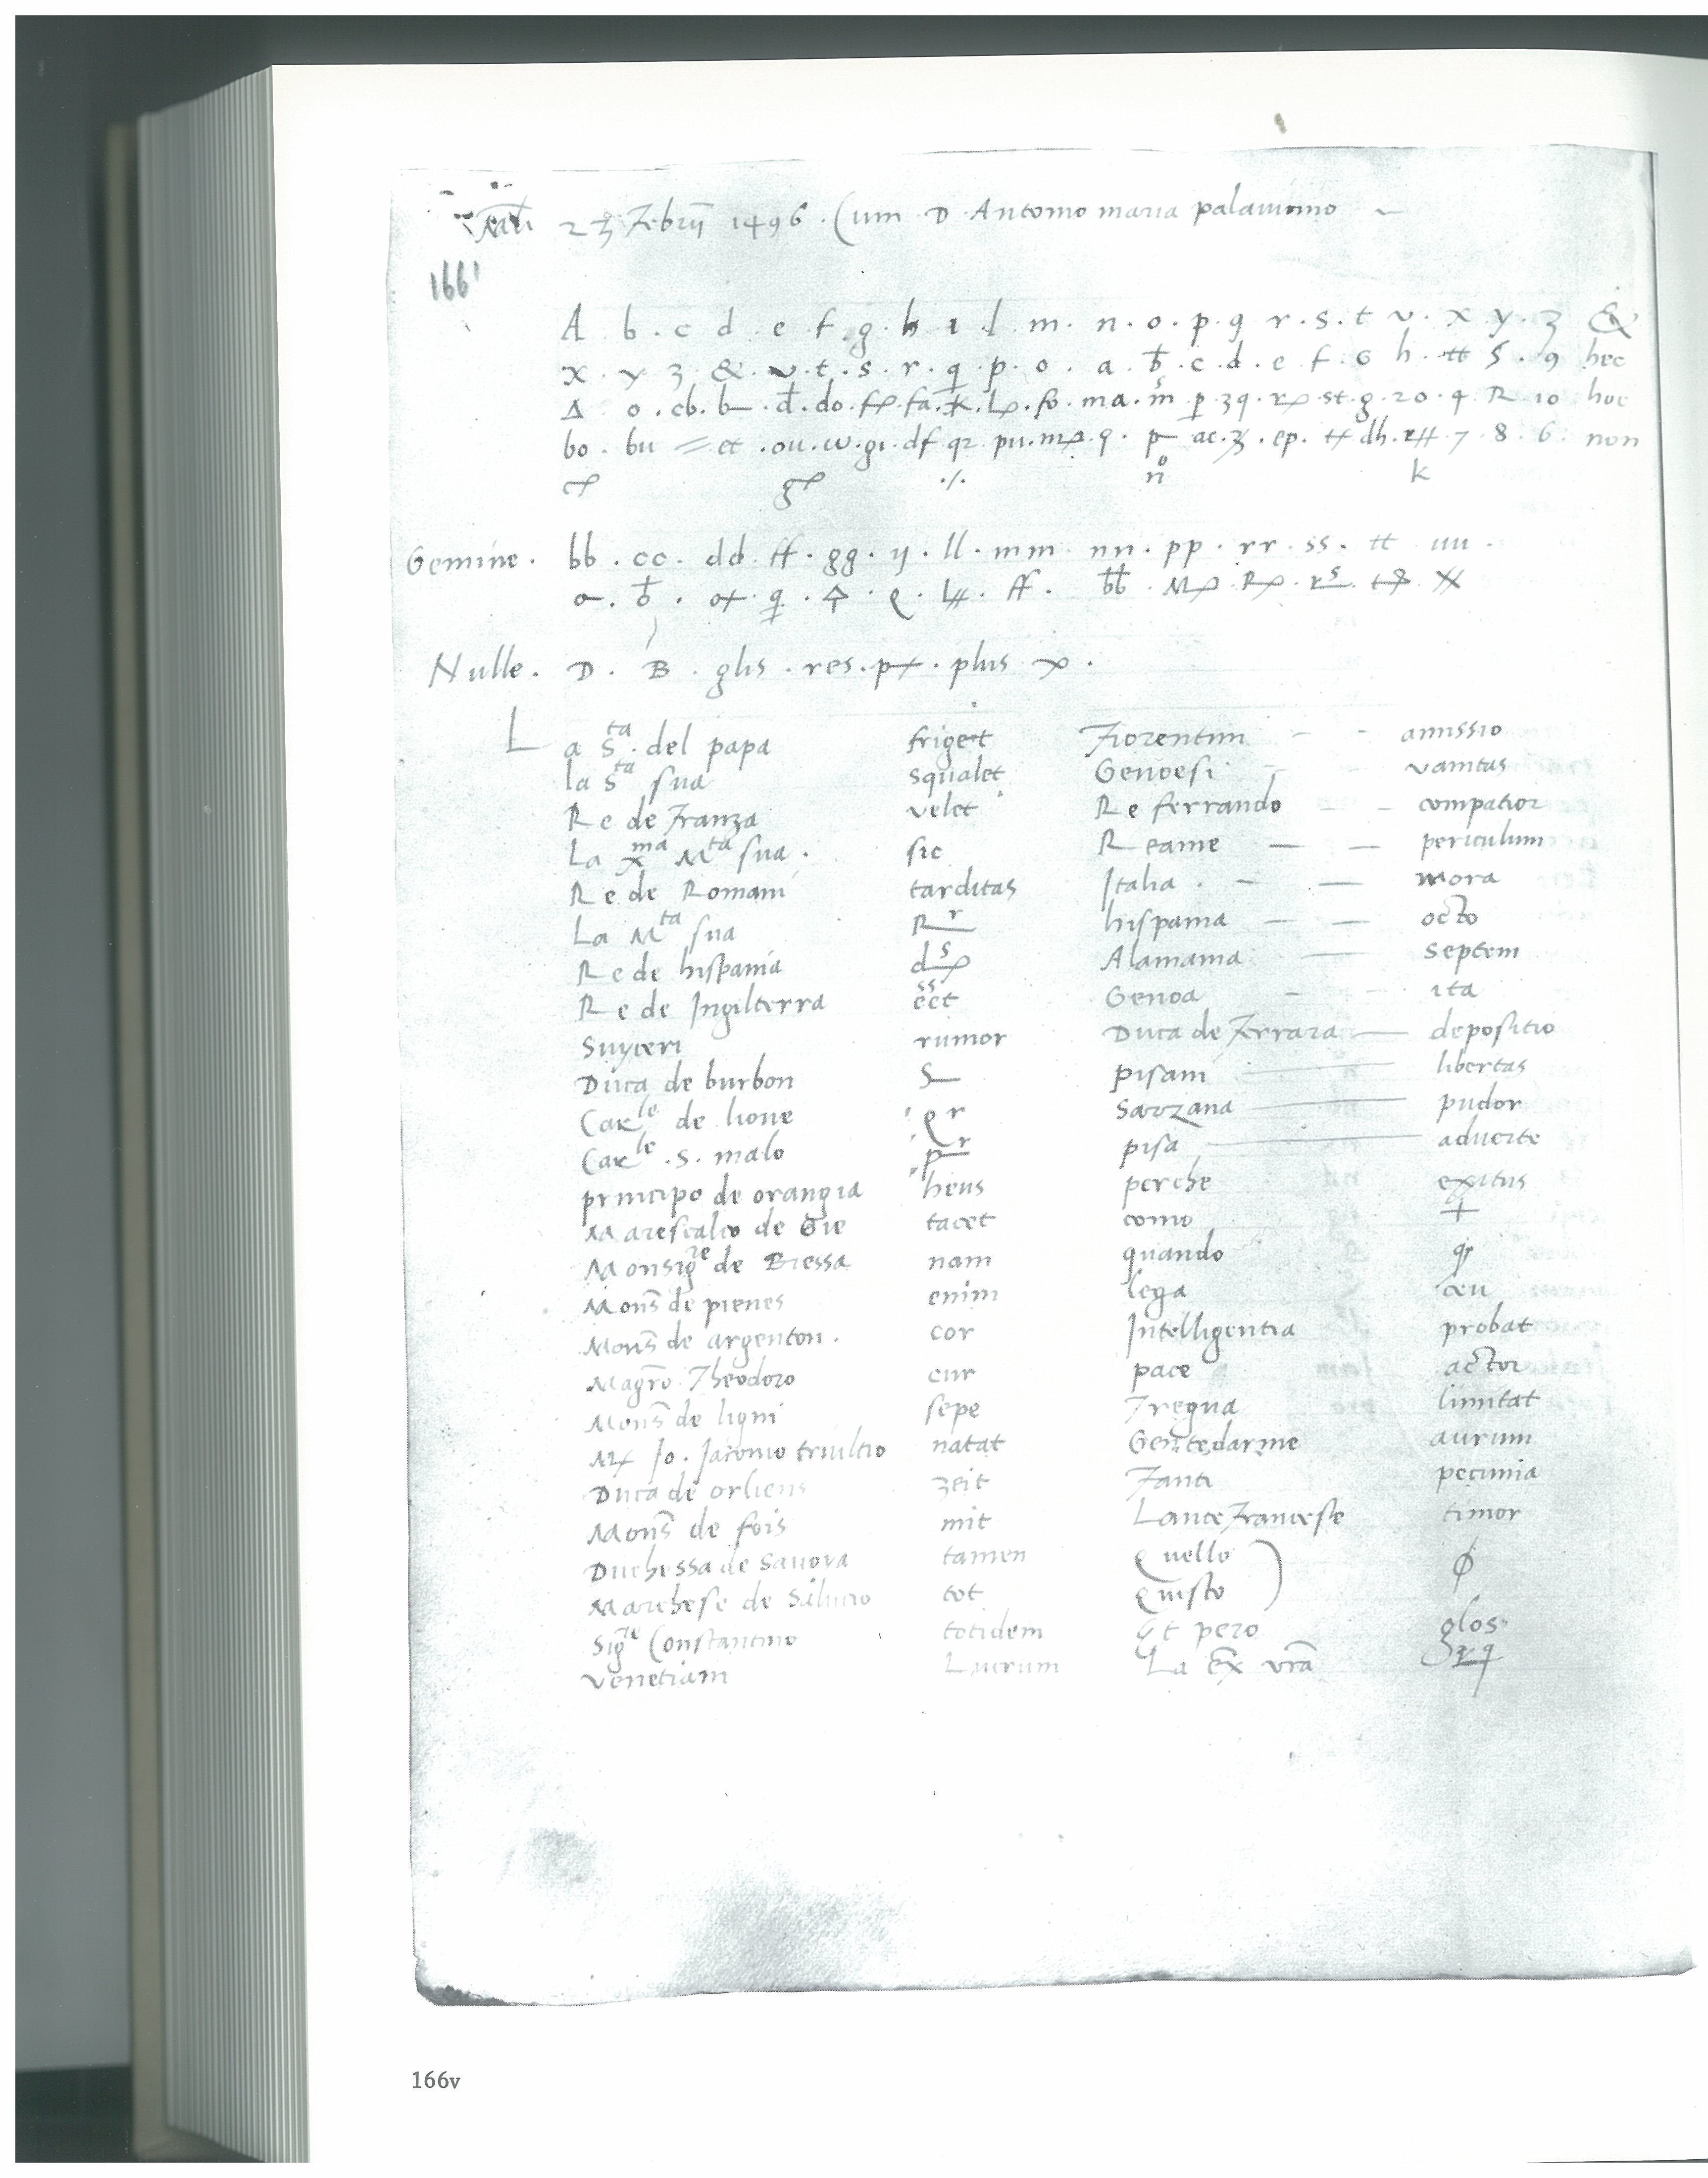 23 Februarij 1496. Cum D. Antonio maria palavicino
166'
A . b . c . d . e . f . g . h . i . l . m . n . o . p . q . r . s . t . v . x . y . z . &
x . y . z . & . v . t . s . r . q . p . o . a . b . c . d . e . f . G . h . tt . 5 . 9 hec
o . cb . do . fa . fo . ma . zq . st . g . 20 . 4 . R . 10 hoc
bo . bu = et . ou . w . gi . df . qz . pu . 9 . ac . ep . dh . 7 . 8 . 6 non
./. n° k
Gemine . bb . cc . dd . ff . gg . ij . ll . mm . nn . pp . rr . ss . tt . uu .
Nulle . D . B . glis . res . plus .
La Sta. del papa friget Fiorentini — — amissio
la Sta sua squalet Genoesi — — vanitas
Re de Franza velet Re ferrando — — compatior
La xma Mta sua . sic Reame — — periculum
Re de Romani tarditas Italia . — — mora
La Mta sua Rr hispania — — octo
Re de hispania Alamania — septem
Re de Ingilterra Genoa — — ita
Suyceri rumor Duca de Ferrara — depositio
Duca de burbon S pisani — libertas
Carle de lione Sarzana — pudor
Carle . S. malo pisa — adverte
principo de orangia heus perche exitus
Marescalco de Gie tacet como +
Monsigre de Bressa nam quando
Mons de pienes enim lega ceu
Mons de argenton . cor Intelligentia probat
Magro Theodoro cur pace actor
Mons de ligni sepe Tregua limitat
Jo. Jacomo triultio natat Gentedarme aurum
Duca de orliens zeit Fanti pecunia
Mons de fois mit Lance Francese timor
Duchessa de Savoya tamen Quello ) ϕ
Marchese de Saluno tot Quisto )
Sigre Constantino totidem Et pero glos
Venetiani Lucrum La Ex vra
166v